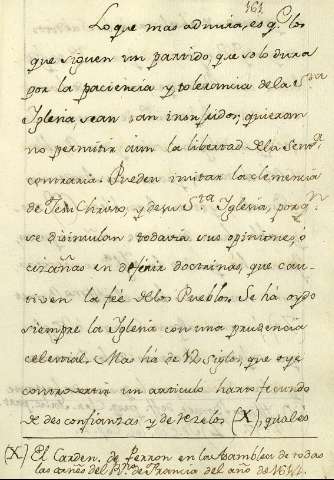 161
Lo que mas admira, es q.e los
que siguen un partido, que solo dura
por la paciencia y tolerancia de la S.ta
Iglesia sean tan insufridos, quieran
no permitir aun la libertad de la Sent.a
contraria. Pueden imitar la clemencia
de Jesu Christo, y de su S.ta Iglesia, por q.n
se disimulan todavia sus opiniones, ó
en definir doctrinas, que cau-
tiven la feé de los Pueblos. Se há oydo
siempre la Iglesia con una prudencia
celestial. Mas há de siglos, que oye
controvertir un articulo harto fecundo
de desconfianzas y de zelos (X), qual es
(X) El Carden. de Perron en la Asamblea de todas
las del R.no de Francia del año de 1614.